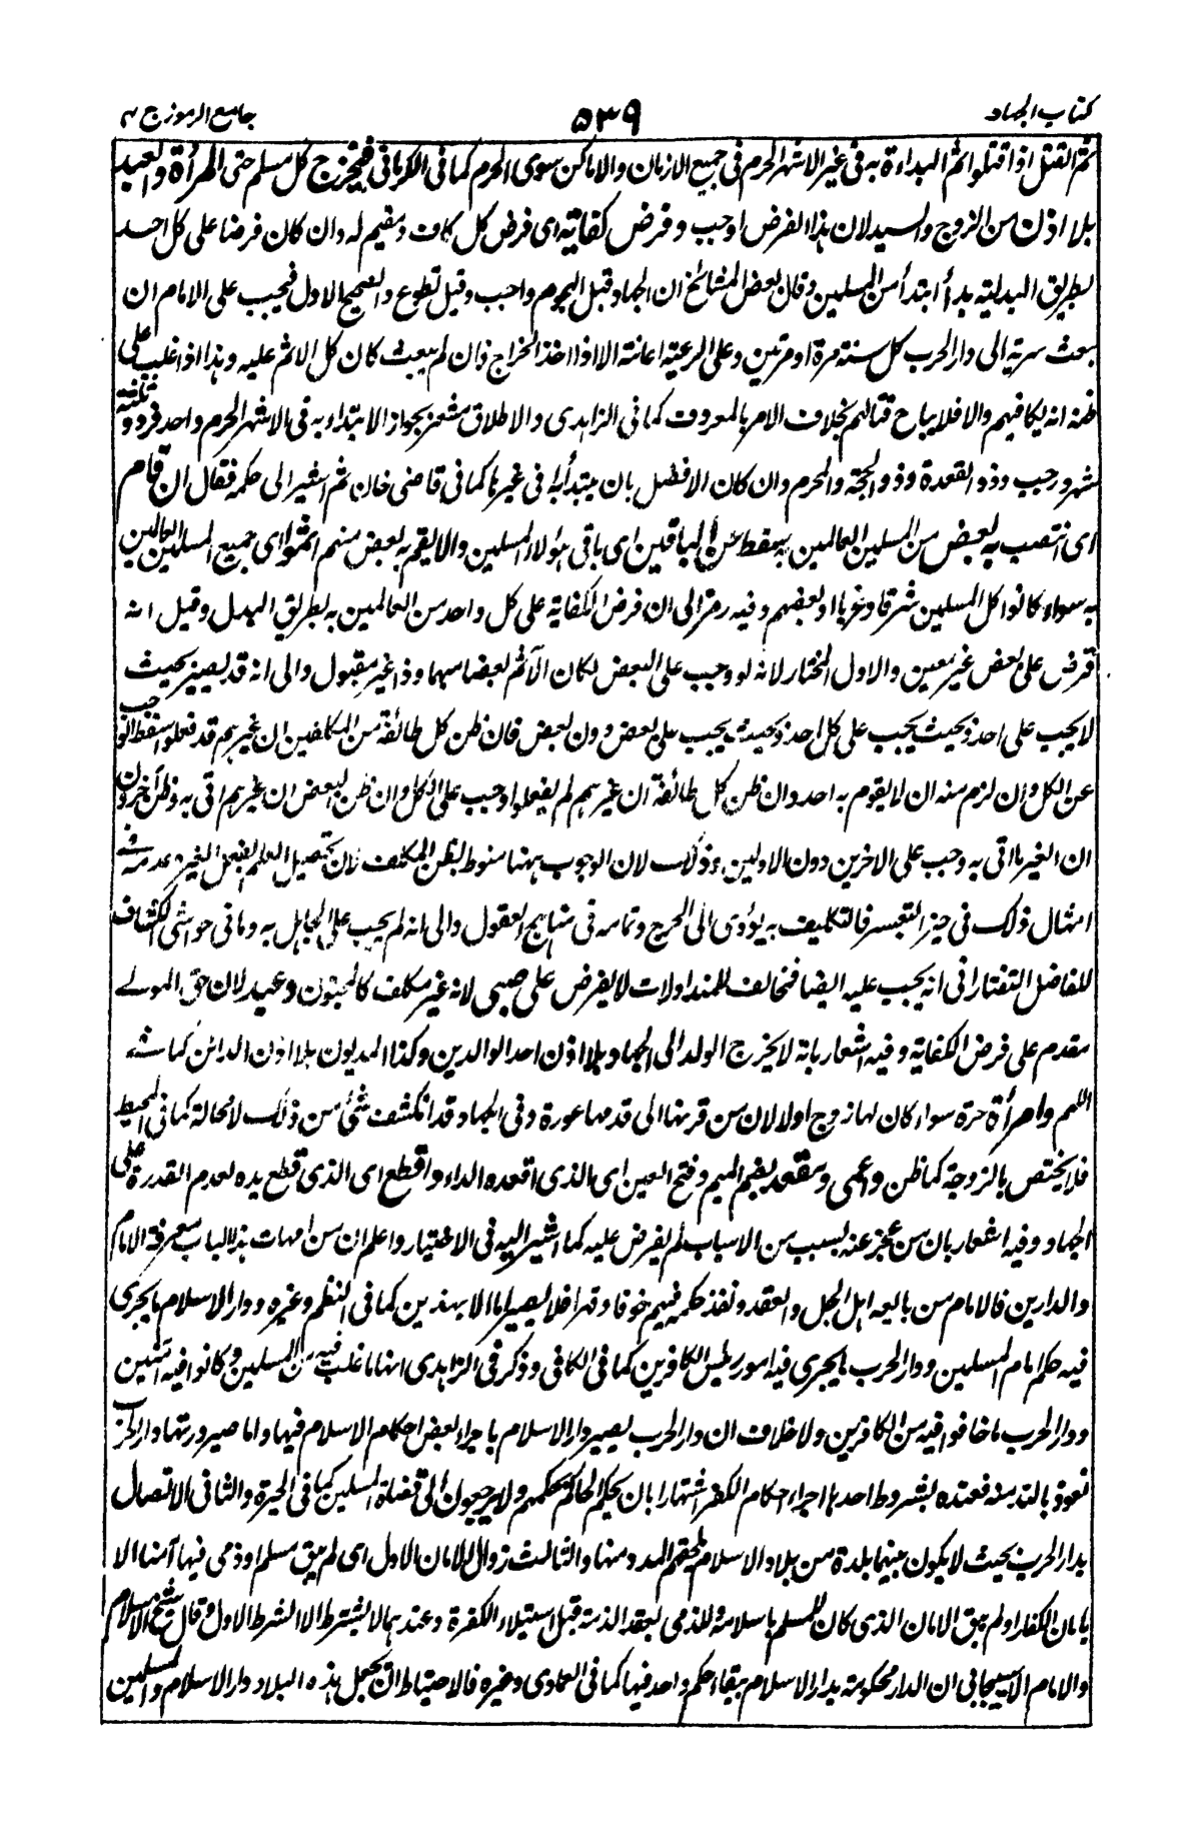 كتاب الجهاد
٥٣٩
جامع الرموز ج ٢
ثم القتل اذا قتلوا ثم البداءة به فى غير الاشهر الحرم فى جميع الازمان والاماكن سوى الحرم كما فى الكرمانى فيخرج كل مسلم حتى المرأة والعبد
بلا اذن من الزوج والسيد لان هذا الفرض اوجب وفرض كفاية اى فرض كل كاف ومقيم له وان كان فرضا على كل احد
بطريق البدلية بدأ ابتدأ من المسلمين وقال بعض المشائخ ان الجهاد قبل الهجوم واجب وقيل تطوع والصحيح الاول فيجب على الامام ان
يبعث سرية الى دار الحرب كل سنة مرة او مرتين وعلى الرعية اعانته الا اذا اخذ الخراج فان لم يبعث كان كل الاثم عليه وهذا اذا غلب على
ظنه انه يكافيهم والا فلا يباح قتالهم بخلاف الامر بالمعروف كما فى الزاهدى والاطلاق مشعر بجواز الابتداء به فى الاشهر الحرم واحد فرد وثلثة
شهر رجب وذو القعدة وذو الحجة والمحرم وان كان الافضل بان يبتدأ به فى غيرها كما فى قاضى خان ثم اشير الى حكمه فقال ان قام
اى انتصب به بعض من المسلمين العالمين به سقط عن الباقين اى باقى هؤلاء المسلمين والا يقم به بعض منهم اثموا اى جميع المسلمين العالمين
به سواء كانوا كل المسلمين شرقا وغربا او بعضهم وفيه رمز الى ان فرض الكفاية على كل واحد من العالمين به بطريق البدل وقيل انه
فرض على بعض غير معين والاول المختار لانه لو وجب على البعض لكان الآثم بعضا مبهما وذا غير مقبول والى انه قد يصير بحيث
لا يجب على احد وبحيث يجب على كل احد وبحيث يجب على بعض دون بعض فان ظن كل طائفة من المكلفين ان غيرهم قد فعلوا سقط الواجب
عن الكل وان لزم منه ان لا يقوم به احد وان ظن كل طائفة ان غيرهم لم يفعلوا وجب على الكل وان ظن البعض ان غيرهم اتى به وظن آخرون
ان الغير ما اتى به وجب على الاخرين دون الاولين وذلك لان الوجوب ههنا منوط بظن المكلف لان تحصيل العلم بفعل الغير وعدمه فى
امثال ذلك فى حيز التعسر فالتكليف به يؤدى الى الحرج وتمامه فى مناهج العقول والى انه لم يجب على الجاهل به وما فى حواشى الكشاف
للفاضل التفتازانى انه يجب عليه ايضا فمخالف للمتداولات لا يفرض على صبى لانه غير مكلف كالمجنون وعبد لان حق المولى
مقدم على فرض الكفاية وفيه اشعار بانه لا يخرج الولد الى الجهاد بلا اذن احد الوالدين وكذا المديون بلا اذن الدائن كما فى
وامرأة حرة سواء كان لها زوج اولا لان من قرنها الى قدمها عورة وفى الجهاد قد انكشف شئ من ذلك لا محالة كما فى المحيط
فلا يختص بالزوجة كما ظن واعمى ومقعد بضم الميم وفتح العين اى الذى اقعده الداء واقطع اى الذى قطع يده لعدم القدرة على
الجهاد وفيه اشعار بان من عجز عنه بسبب من الاسباب لم يفرض عليه كما اشير اليه فى الاختيار واعلم ان من امهات هذا الباب معرفة الامام
والدارين فالامام من بايعه اهل الحل والعقد ونفذ حكمه فيهم خوفا وقهرا فلا يصير اماما الا بهذين كما فى النظم وغيره ودار الاسلام ما يجرى
فيه حكم امام المسلمين ودار الحرب ما يجرى فيه امور رئيس الكافرين كما فى الكافى وذكر فى الزاهدى انها ما غلب فيه من المسلمين وكانوا فيه آمنين
ودار الحرب ما خافوا فيه من الكافرين ولا خلاف ان دار الحرب يصير دار الاسلام باجراء بعض احكام الاسلام فيها واما صيرورتها دار الحرب
نعوذ بالله منه فعنده بشروط احدها اجراء احكام الكفر اشتهارا بان يحكم الحاكم بحكمهم ولا يرجعون الى قضاة المسلمين كما فى الحيرة والثانى الاتصال
بدار الحرب بحيث لا يكون بينهما بلدة من بلاد الاسلام يلحقهم المدد منها والثالث زوال الامان الاول اى لم يبق مسلم او ذمى فيها آمنا الا
بامان الكفار او لم يبق الامان الذى كان للمسلم باسلامه وللذمى بعقد الذمة قبل استيلاء الكفرة وعندهما لا يشترط الا الشرط الاول وقال شيخ الاسلام
والامام الاسبيجابى ان الدار محكومة بدار الاسلام ببقاء حكم واحد فيها كما فى العمادى وغيره فالاحتياط ان يجعل هذه البلاد دار الاسلام والمسلمين